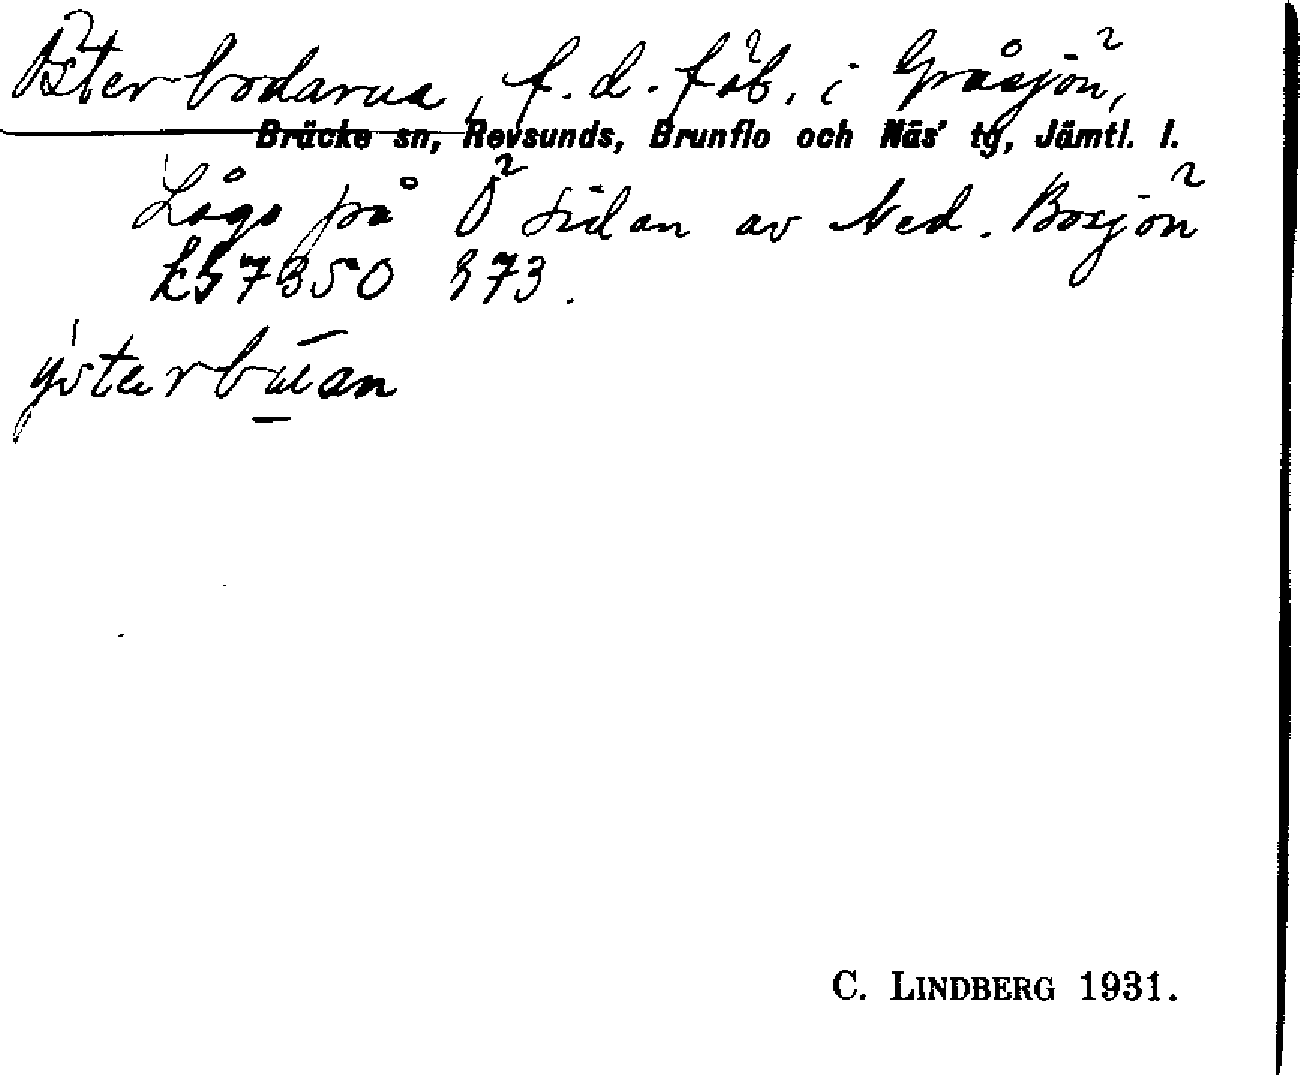 Österbodarna, f. d. fäb. i Gråsjön,
Bräcke sn, Revsunds, Brunflo och Näs' tg, Jämtl. l.
Lågo på Ö sidan av Ned. Bosjön
L57350 873.
C. LINDBERG 1931.